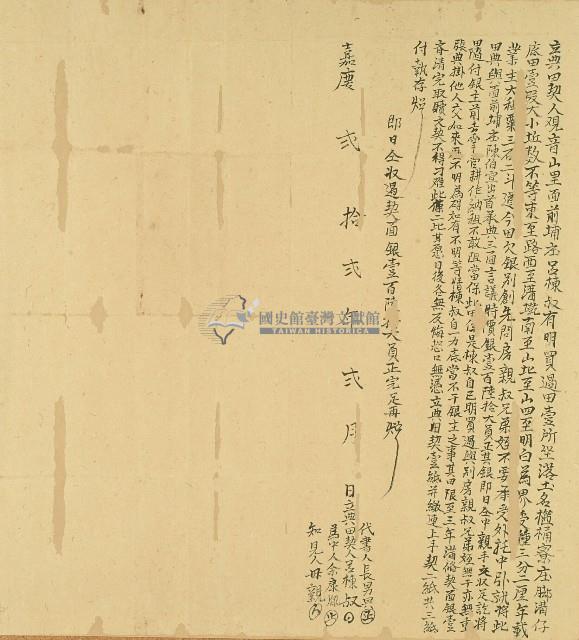 立典田契人观音山里面前埔庄吕棟叔有明買過田壹所坐落土名櫃桶寮庄脚潽仔
底田壹段大小坵数不等東至路西至潽墘南至山北至山四至明白為界受種三分二厘年载
業主大租粟三石二斗道今因欠銀别創先問房親叔兄弟姪不要承受外託中引就将此
田典與面前埔庄陳伯宣出首承典三面言議時價銀壹百陸拾大員正其銀即日仝中親手交收足訖将
田随付銀主前去掌管耕作納租不敢阻當保此田係是棟叔自己明買過與别房親叔兄弟姪無干亦無重
張典掛他人交加来歷不明為碍如有不明等情棟叔自一力底當不干銀主之事其田限至三年滿俻契面銀壹
齊清完取贖文契不得刁难此係二比甘愿日後各無反悔恐口無憑立典田契壹紙并繳連上手契二紙共三紙
付執存炤
即日仝收過契面銀壹百陸拾大員正完足再炤
嘉慶弍拾弍年弍月 日立典田契人吕棟叔
代書人長男
為中人余康
知見人母親
國史館臺灣文獻館
TAIWAN HISTORICA